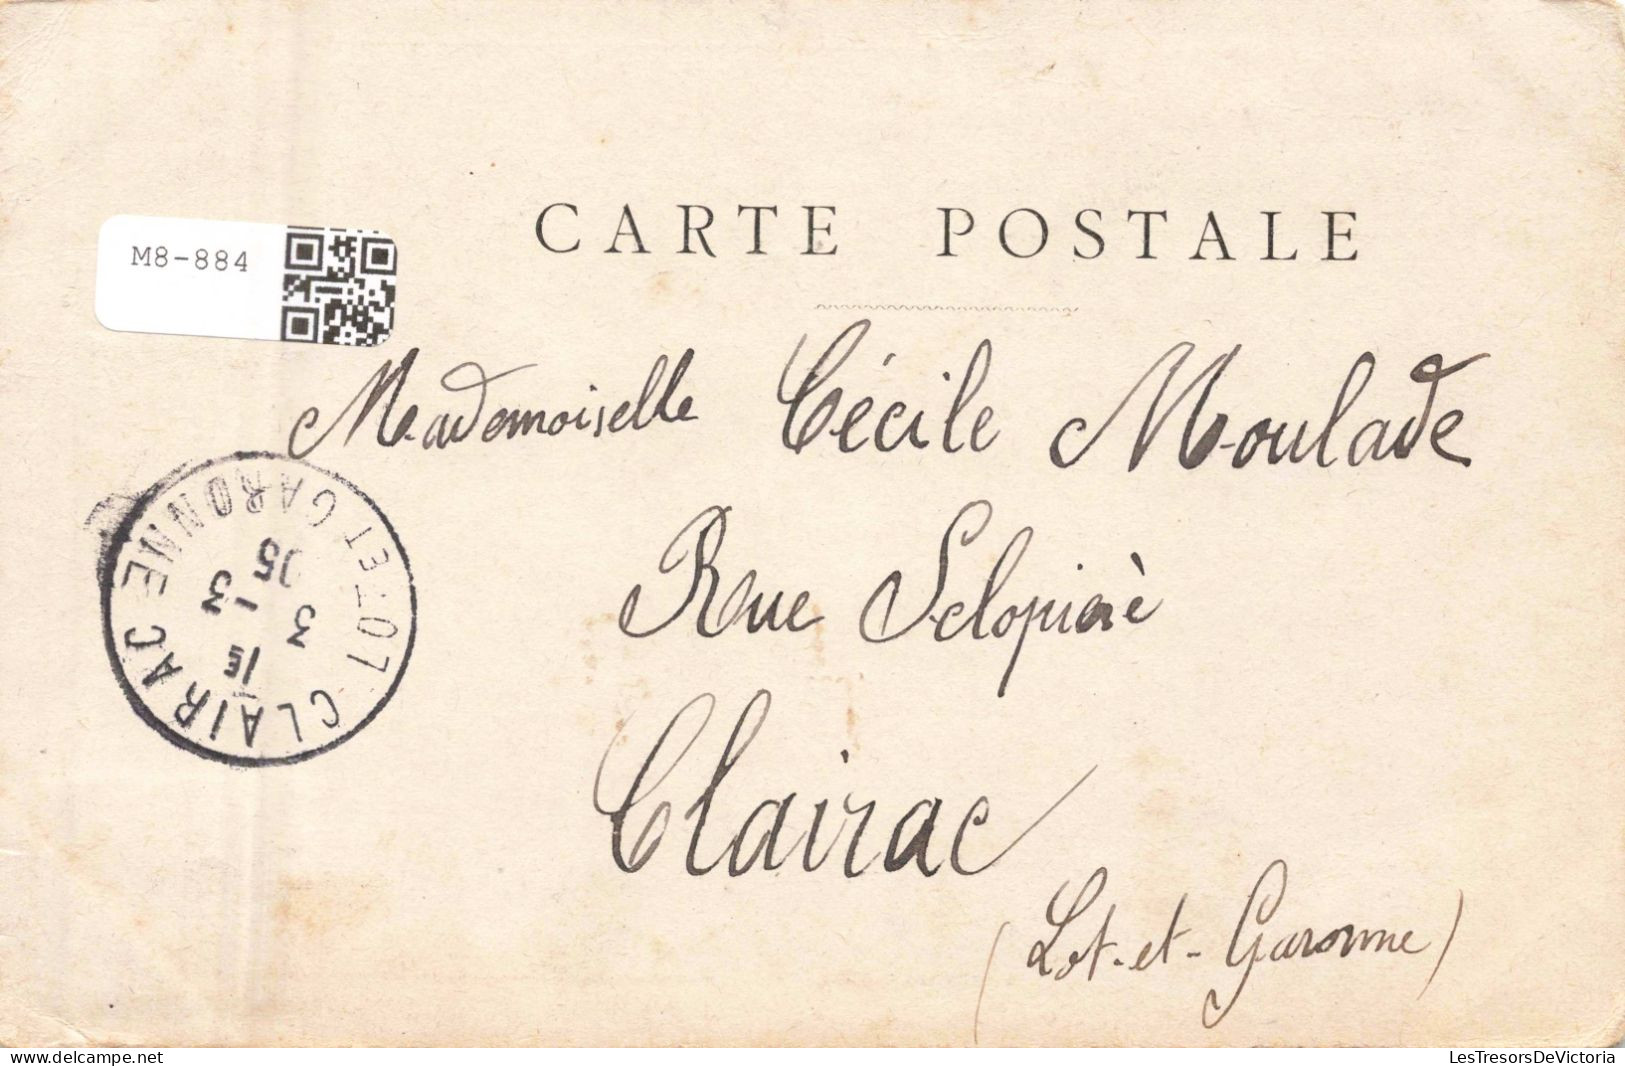 CARTE POSTALE
M8-884
Mademoiselle Cécile Moulade
Rue
Clairac
(Lot-et-Garonne)
CLAIRAC
LOT-ET-GARONNE
15
3 - 3
05
delcampe.net
LesTresorsDeVictoria